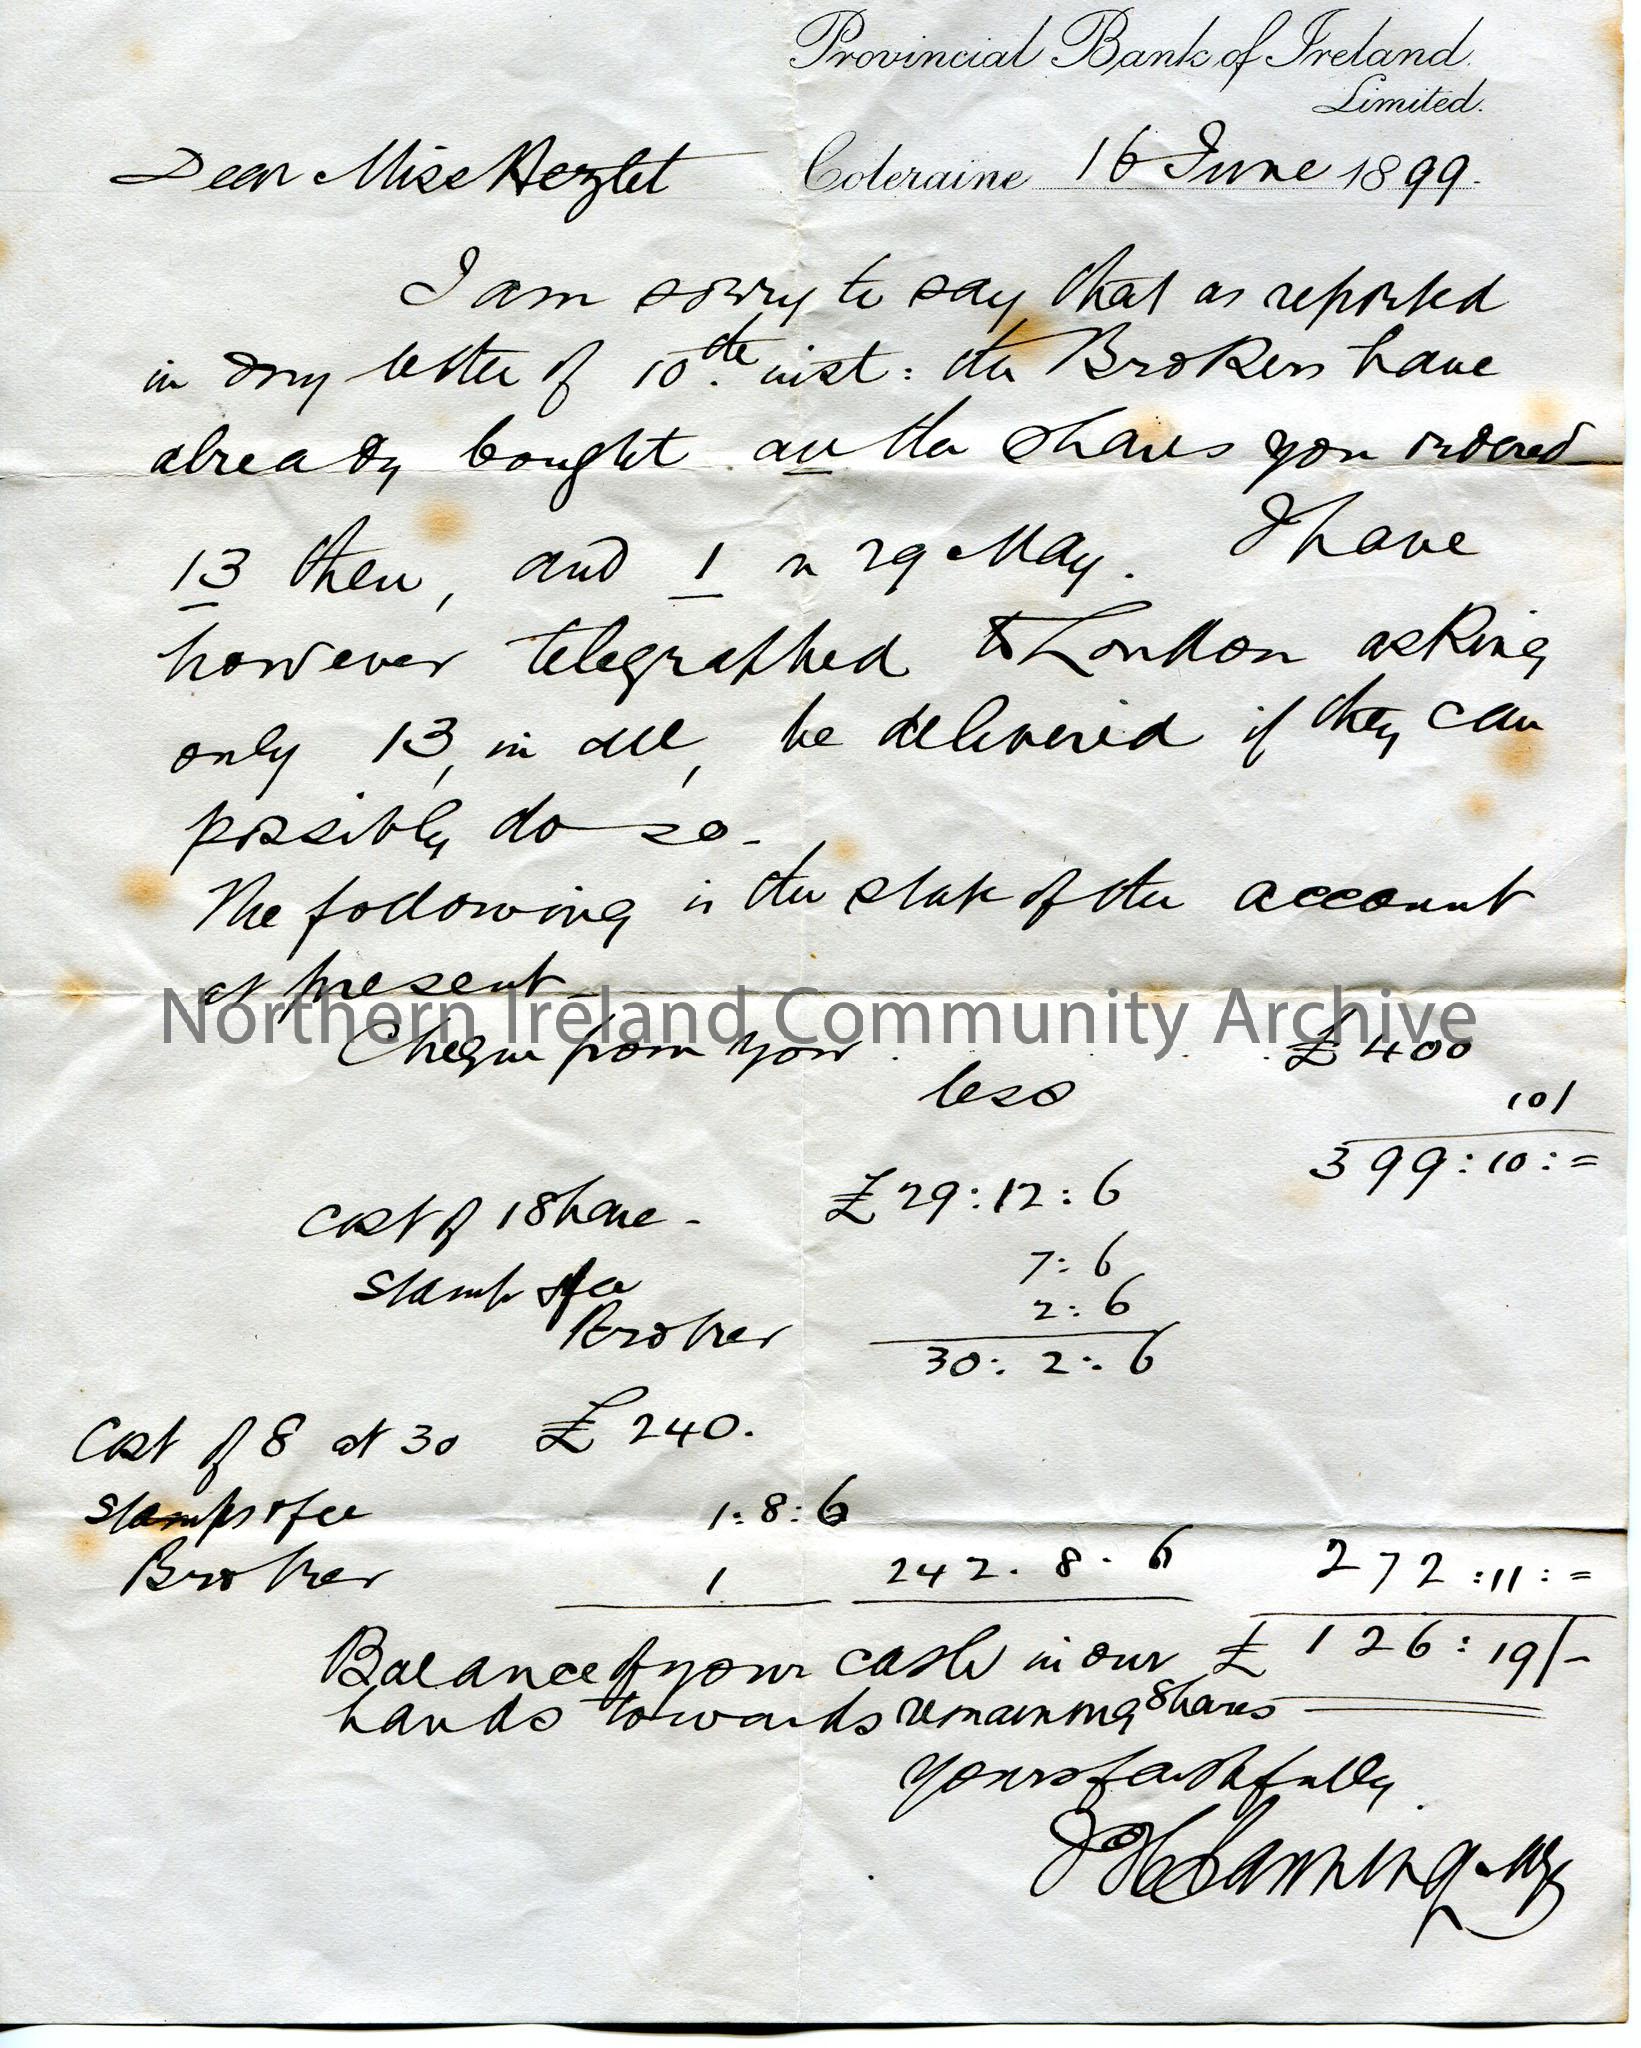 Provincial Bank of Ireland
Limited.
Coleraine 16 June 1899.
Dear Miss Hezlet
I am sorry to say that as reported
in my letter of 10th inst: the Brokers have
already bought all the shares you ordered
13 then, and 1 on 29 May. I have
however telegraphed to London asking
only 13, in all, be delivered if they can
possibly do so -
The following is the state of the account
at present -
Northern Ireland Community Archive
Cheque from you . . . . £400
less 10/
399:10:=
Cost of 1 Share - £29:12:6
Stamp & fee 7:6
Broker 2:6
30: 2: 6
Cost of 8 at 30 £240.
Stamps & fee 1:8:6
Broker 1 242.8.6 272:11:=
Balance of your cash in our £126:19/-
hands towards remaining shares
Yours faithfully
Manning Mgr